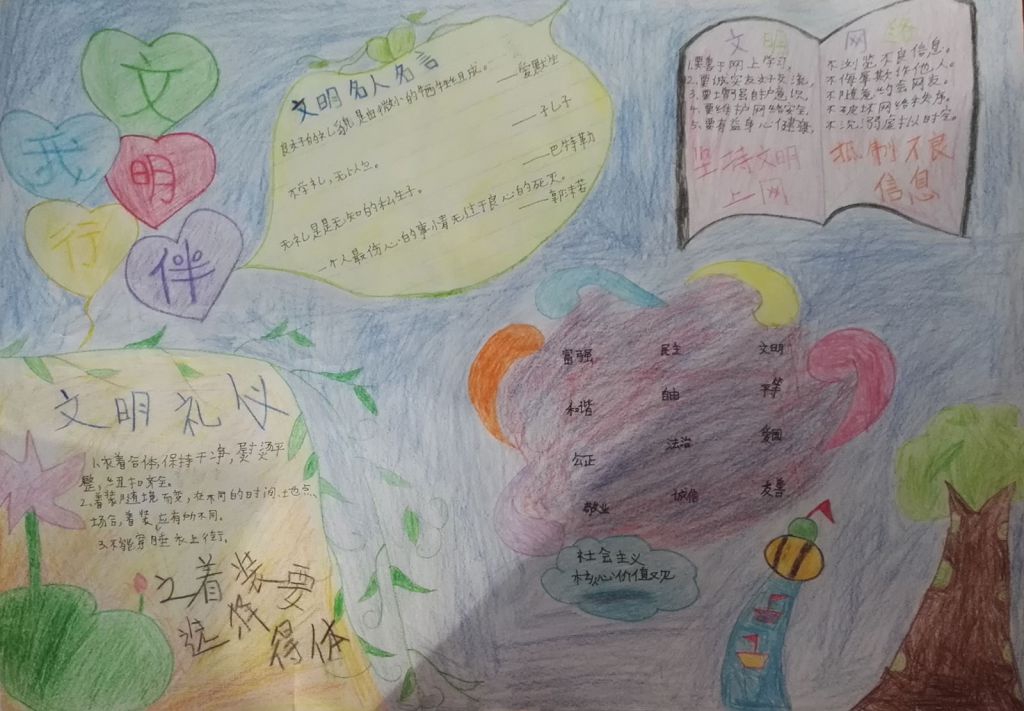 文
我
明
行
伴
文明名人名言
良好的礼貌是由微小的牺牲组成。
——爱默生
不学礼，无以立。
——孔子
无礼是无知的私生子。
——巴特勒
一个人最伤心的事情无过于良心的死灭。
——郭沫若
文明 网络
1.要善于网上学习,
2.要诚实友好交流,
3.要增强自护意识,
4.要维护网络安全,
5.要有益身心健康,
不浏览不良信息。
不侮辱欺诈他人。
不随意约会网友。
不破坏网络秩序。
不沉溺虚拟时空。
坚持文明
上网
抵制不良
信息
富强 民主 文明
和谐 自由 平等
公正 法治 爱国
敬业 诚信 友善
社会主义
核心价值观
文明礼仪
1.衣着合体,保持干净,熨烫平
整,纽扣安全。
2.着装随境而变,在不同的时间、地点、
场合,着装应有如不同。
3.不能穿睡衣上街。
2着装要
选择
得体